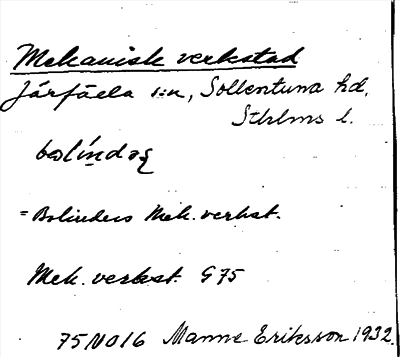 Mekaniesk verkstad
Järfäela s:n, Sollentuna hd.
Sthlms l.
= Bolinders Mek. verkst.
Mek. verkst. G75
75NO16 Manne Eriksson 1932.